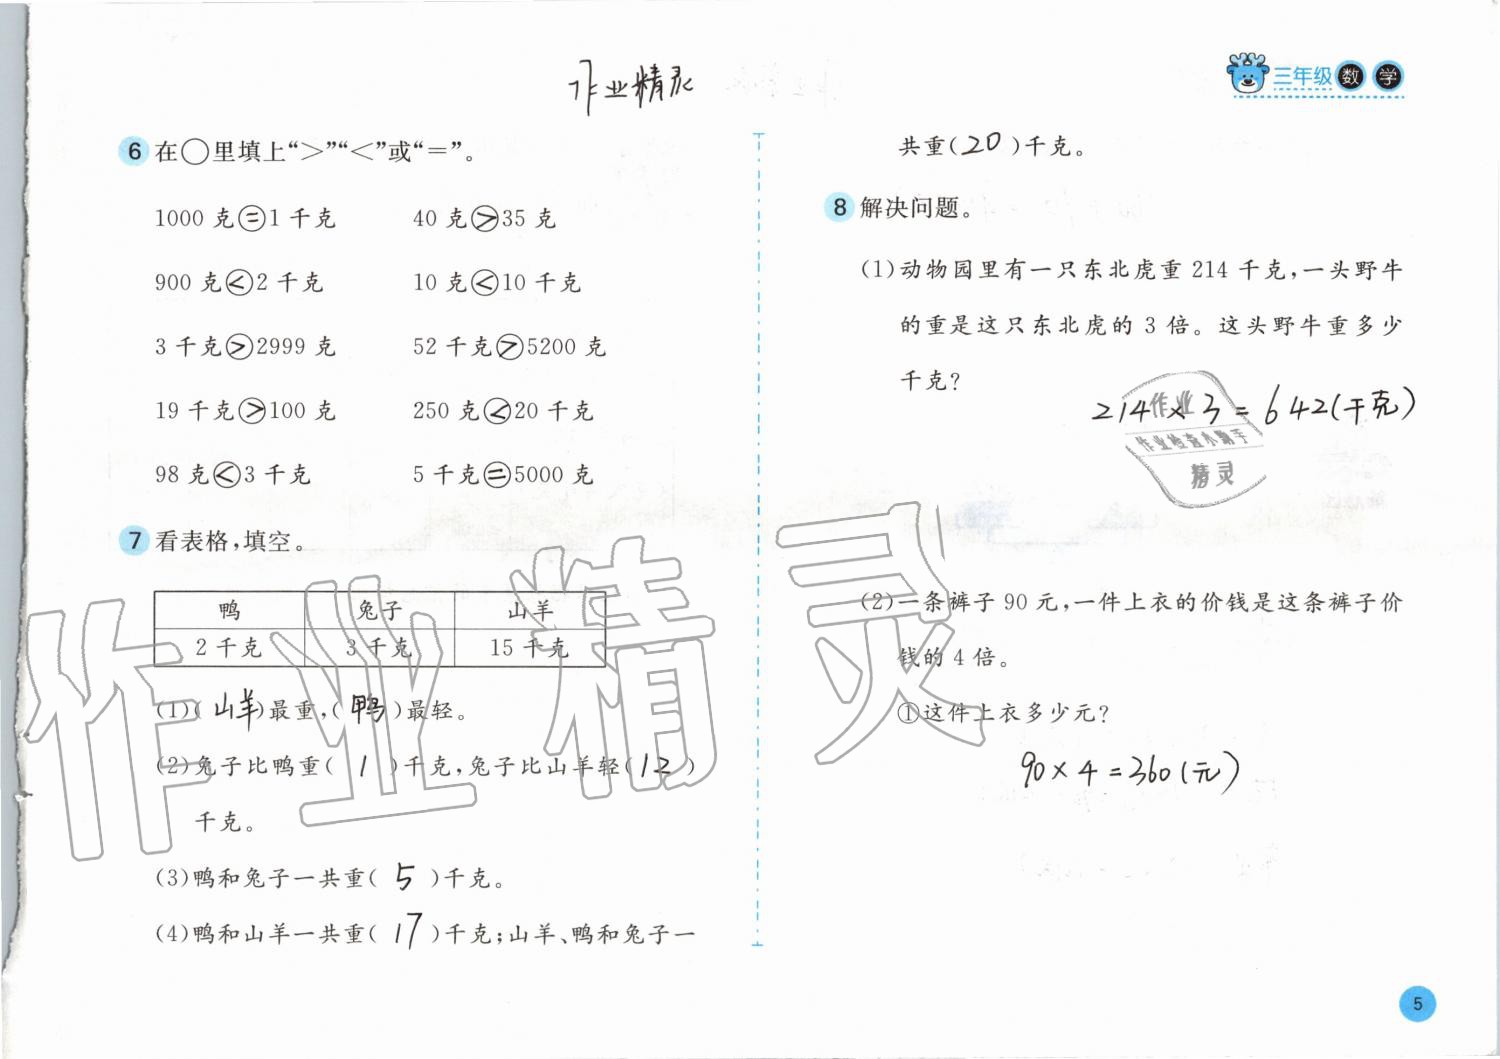 作业精灵
三年级 数 学
6 在○里填上“>”“<”或“=”。
1000 克=1 千克 40 克>35 克
900 克<2 千克 10 克<10 千克
3 千克>2999 克 52 千克>5200 克
19 千克>100 克 250 克<20 千克
98 克<3 千克 5 千克=5000 克
7 看表格,填空。
鸭 兔子 山羊
2 千克 3 千克 15 千克
(1)(山羊)最重,(鸭)最轻。
(2)兔子比鸭重(1)千克,兔子比山羊轻(12)
千克。
(3)鸭和兔子一共重(5)千克。
(4)鸭和山羊一共重(17)千克;山羊、鸭和兔子一
共重(20)千克。
8 解决问题。
(1)动物园里有一只东北虎重 214 千克,一头野牛
的重是这只东北虎的 3 倍。这头野牛重多少
千克?
214×3=642(千克)
作业
作业检查小助手
精灵
(2)一条裤子 90 元,一件上衣的价钱是这条裤子价
钱的 4 倍。
①这件上衣多少元?
90×4=360(元)
作业精灵
5